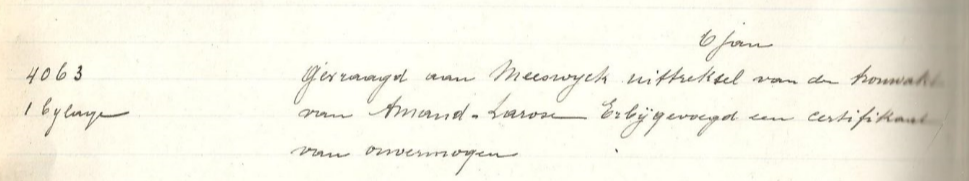 6 jan
4063 Gevraagd aan Meeswyck uittreksel van den trouwakt
1 bylage van Amand-Larose Erbijgevoegd een certifikaat
van onvermogen